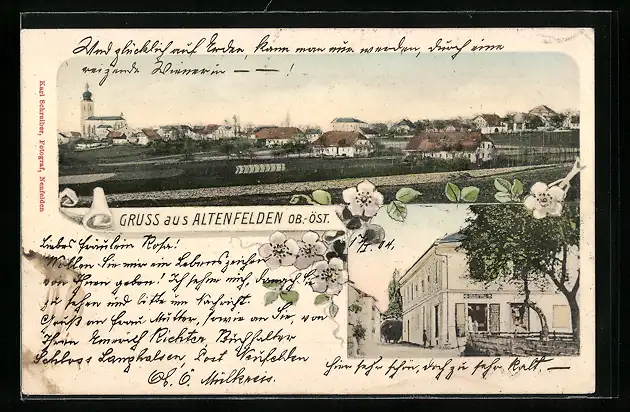 Und glücklich auf Erden, kann man nur werden, durch eine
reizende Wienerin — — !
Karl Schreiber, Fotograf, Neufelden
GRUSS aus ALTENFELDEN OB.-ÖST.
04.
Liebes Fräulein Rosa!
Wollen Sie mir ein Lebenszeichen
von Ihnen geben! Ich sehne mich, darnach
zu sehen und bitte um Nachricht.
Gruß an Frau Mutter, sowie an Sie, von
Ihrem Emerich Richter, Buchhalter
Schloss Langhalsen, Post Neufelden
Ob. Ö. Mülkreis.
Hier sehr schön, doch zu sehr kalt. —